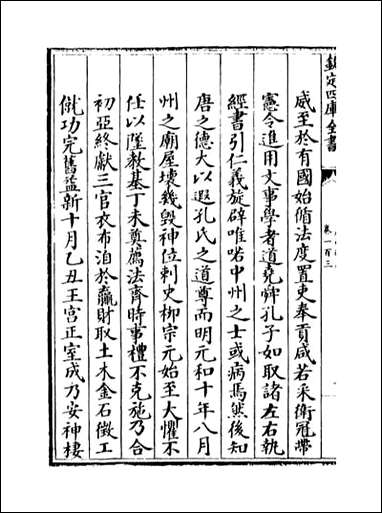 欽定四庫全書
卷一百三
咸至於有國始循法度置吏奉貢咸若采衛冠帶
憲令進用文事學者道堯舜孔子如取諸左右執
經書引仁義旋辟唯喏中州之士或病焉然後知
唐之德大以遐孔氏之道尊而明元和十年八月
州之廟屋壞幾毀神位刺史柳宗元始至大懼不
任以墜教基丁未奠薦法齊時事禮不克施乃合
初亞終獻三官衣布洎於羸財取土木金石徵工
僦功完舊益新十月乙丑王宮正室成乃安神棲